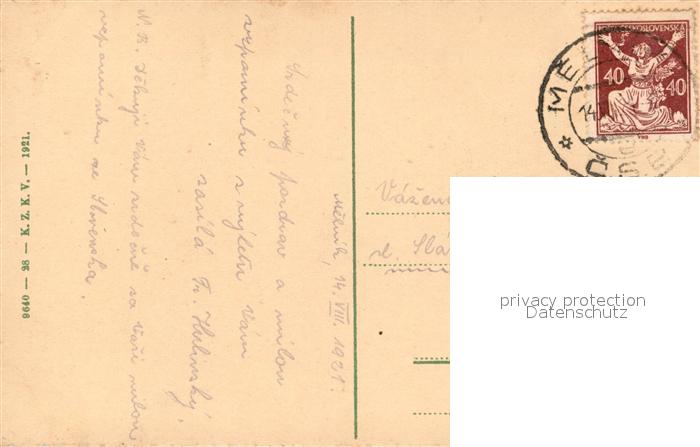 Mělník, 14. VIII. 1921.
Srdečný pozdrav a milou
vzpomínku z výletu Vám
zasílá Fr. Hulinský.
N. B. Děkuji Vám srdečně za Vaši milou
vzpomínku ze Slovenska.
9640 — 28 — K. Z. K. V. — 1921.
ČESKOSLOVENSKÁ
40 40
MĚL
14
ČS
Vážen
sl. Slá
privacy protection
Datenschutz